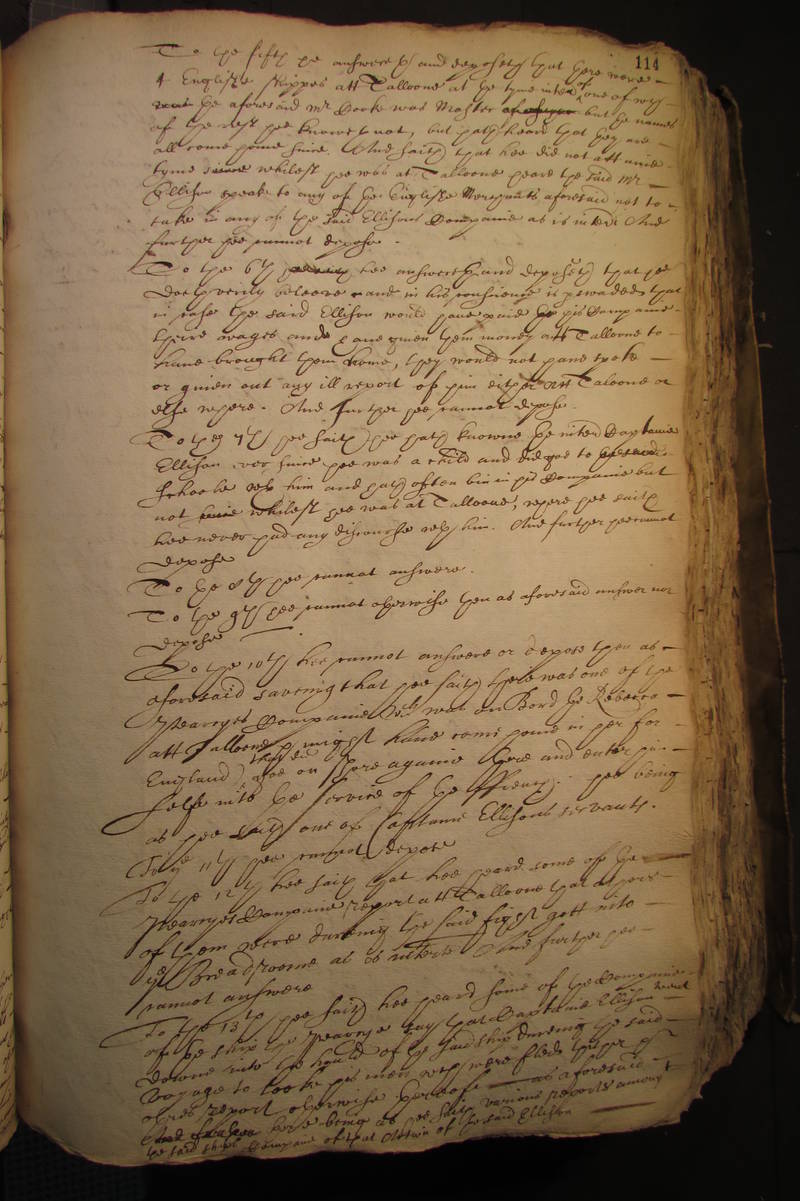 114
To the fift he answereth and deposeth that there were
4 Englishe shippes att Talloone at the tyme interr of one of wch
the aforesaid Mr Dorke was Master but the names
of the rest hee knoweth not, but hath heard that they are
all come home since. And saith that hee did not att anie
tyme whilest hee was at Talloone heare the said Mr
Ellison speake to any of the Englishe Merchants aforesaid not to
take in any of the said Ellisons Companie as is interr And
further hee cannot depose.
To the 6th hee answereth and deposeth that hee
doeth verily beleeve and in his conscience is perswaded that
in case the said Ellison would have paid his Companie
theire wages and have given them money att Talloone to
have brought them home, they would not have spoke
or given out any ill report of him either att Taloone or
else where. And further hee cannot depose.
To the 7th hee saith hee hath knowne the interr Captaine
Ellison ever since hee was a child and did goe to
schoole wth him and hath often bin in his Companie but
not whilest hee was at Talloone, where hee saith
hee never had any discourse wth him. And further hee cannot
depose
To the 8th hee cannot answere.
To the 9th hee cannot otherwise then as aforesaid answer nor
depose
To the 10th hee cannot answere or depose then as
aforesaid saveing that hee saith there was one of the
Hearveyes Companie wch was on Bord the Rebecca
att Talloone might have come home in her for
England, did goe on shore againe there and enter him
selfe into the service of the ffrench. hee being
as hee saith one of Captaine Ellisons servants.
To ye 11th hee cannot depose
To the 12th hee saith that hee heard some of the
Hearveyes Companie report att Talloone that
of them were dureing the said fight gott into
ye Breadroome as is interr And further hee
cannot answere
To the 13th hee saith hee heard some of the Companie
of the ship the Hearveye say that Captaine Ellison went
downe into the hould of the said ship dureing the said
voyage to looke his men wch were fled thither
others report otherwise thereof as aforesaid
there being as hee saith various reports amongst
the said ships Companie of that Action of the said Ellison